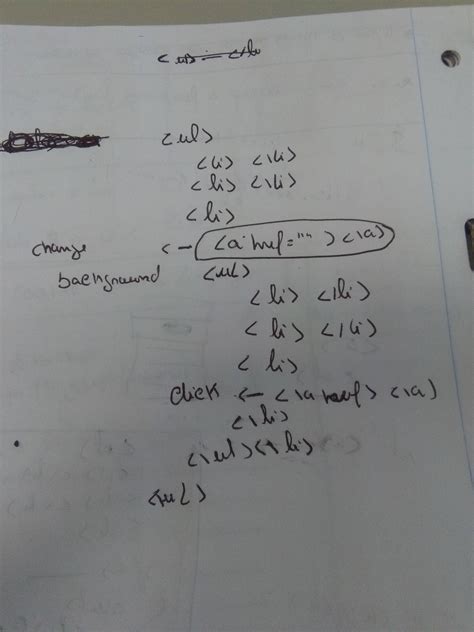 <ul>
<li> <\li>
<li> <\li>
<li>
change <- <a href="" > <\a>
background <ul>
<li> <\li>
<li> <\li>
<li>
click <- <\a href> <\a>
<\li>
<\ul> <\li>
<\ul>